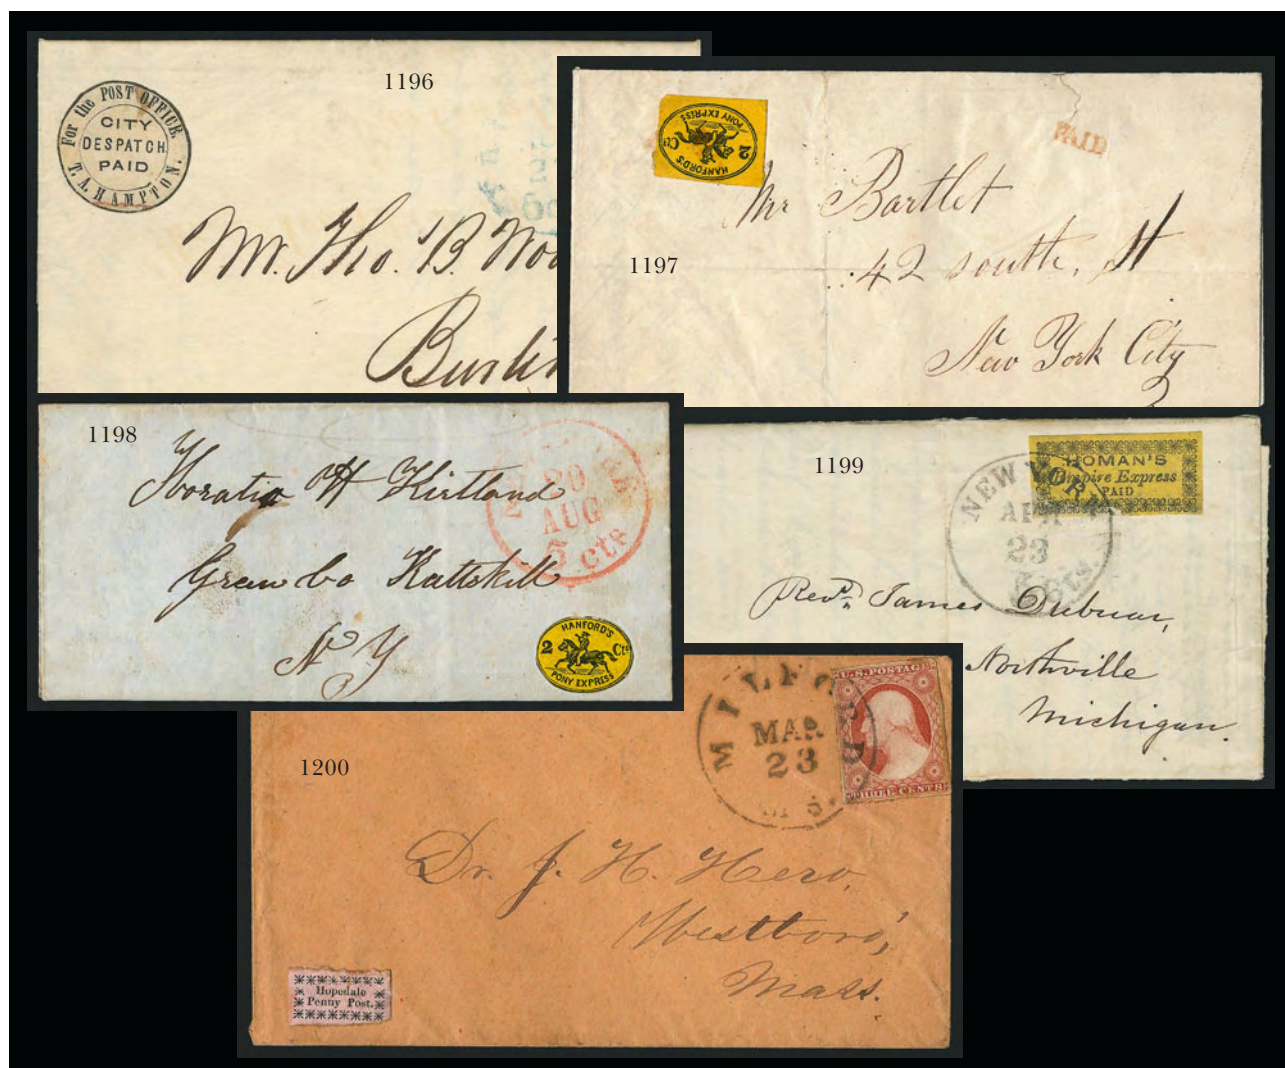 1196
For the POST OFFICE.
CITY
DESPATCH
PAID
T. A. HAMPTON.
Mr. Tho. B. Woo
Burlin
1197
HANFORD'S
2 Cts
PONY EXPRESS
PAID
Mr Bartlet
42 south, St
New York City
2
1198
Horatio H Kirtland
Green Co Kattskill
N Y
20
AUG
5 cts
HANFORD'S
2 Cts
PONY EXPRESS
1199
HOMAN'S
Empire Express
PAID
NEW YORK
APR
23
cts.
Revd. James Dubuar,
Northville
Michigan.
1200
MILFORD
MAR
23
MS.
U.S. POSTAGE
THREE CENTS
Dr. J. H. Hero,
Westboro,
Mass.
Hopedale
Penny Post.